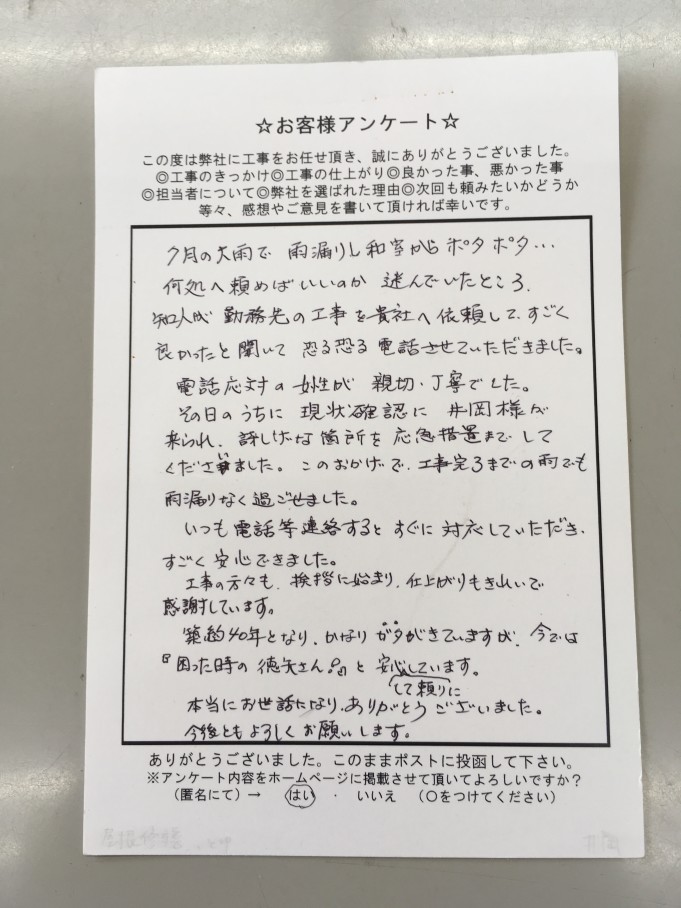 ☆お客様アンケート☆
この度は弊社に工事をお任せ頂き、誠にありがとうございました。
◎工事のきっかけ◎工事の仕上がり◎良かった事、悪かった事
◎担当者について◎弊社を選ばれた理由◎次回も頼みたいかどうか
等々、感想やご意見を書いて頂ければ幸いです。
7月の大雨で 雨漏りし和室からポタポタ…
何処へ頼めばいいのか 迷んでいたところ、
知人が 勤務先の工事を貴社へ依頼して、すごく
良かったと聞いて 恐る恐る 電話させていただきました。
電話応対の女性が 親切・丁寧でした。
その日のうちに 現状確認に 井岡様が
来られ、詳しげな箇所を 応急措置まで して
くださいました。このおかげで、工事完了までの雨でも
雨漏りなく過ごせました。
いつも 電話等連絡すると すぐに 対応していただき、
すごく安心できました。
工事の方々も、挨拶に始まり、仕上がりもきれいで
感謝しています。
築約40年となり、かなり ガタがきていますが、今では
『困った時の 徳矢さん!!』と 安心しています。
して頼りに
本当にお世話になり、ありがとうございました。
今後ともよろしくお願いします。
ありがとうございました。このままポストに投函して下さい。
※アンケート内容をホームページに掲載させて頂いてよろしいですか?
(匿名にて)→ はい ・ いいえ (○をつけてください)